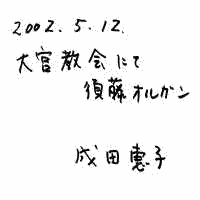 2002.5.12.
大宮教会にて
須藤オルガン
成田恵子